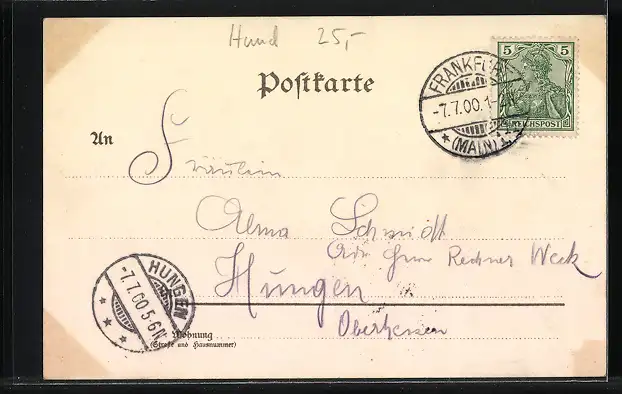 Hund 25,-
5 5
REICHSPOST
FRANKFURT
-7.7.00.1-2N
(MAIN) 1.
Postkarte
An
Fräulein
Alma Schmidt
Adr. Herrn Rechner Weck
Hungen
Oberhessen
HUNGEN
-7.7.00.5-6N
Wohnung
(Straße und Hausnummer)